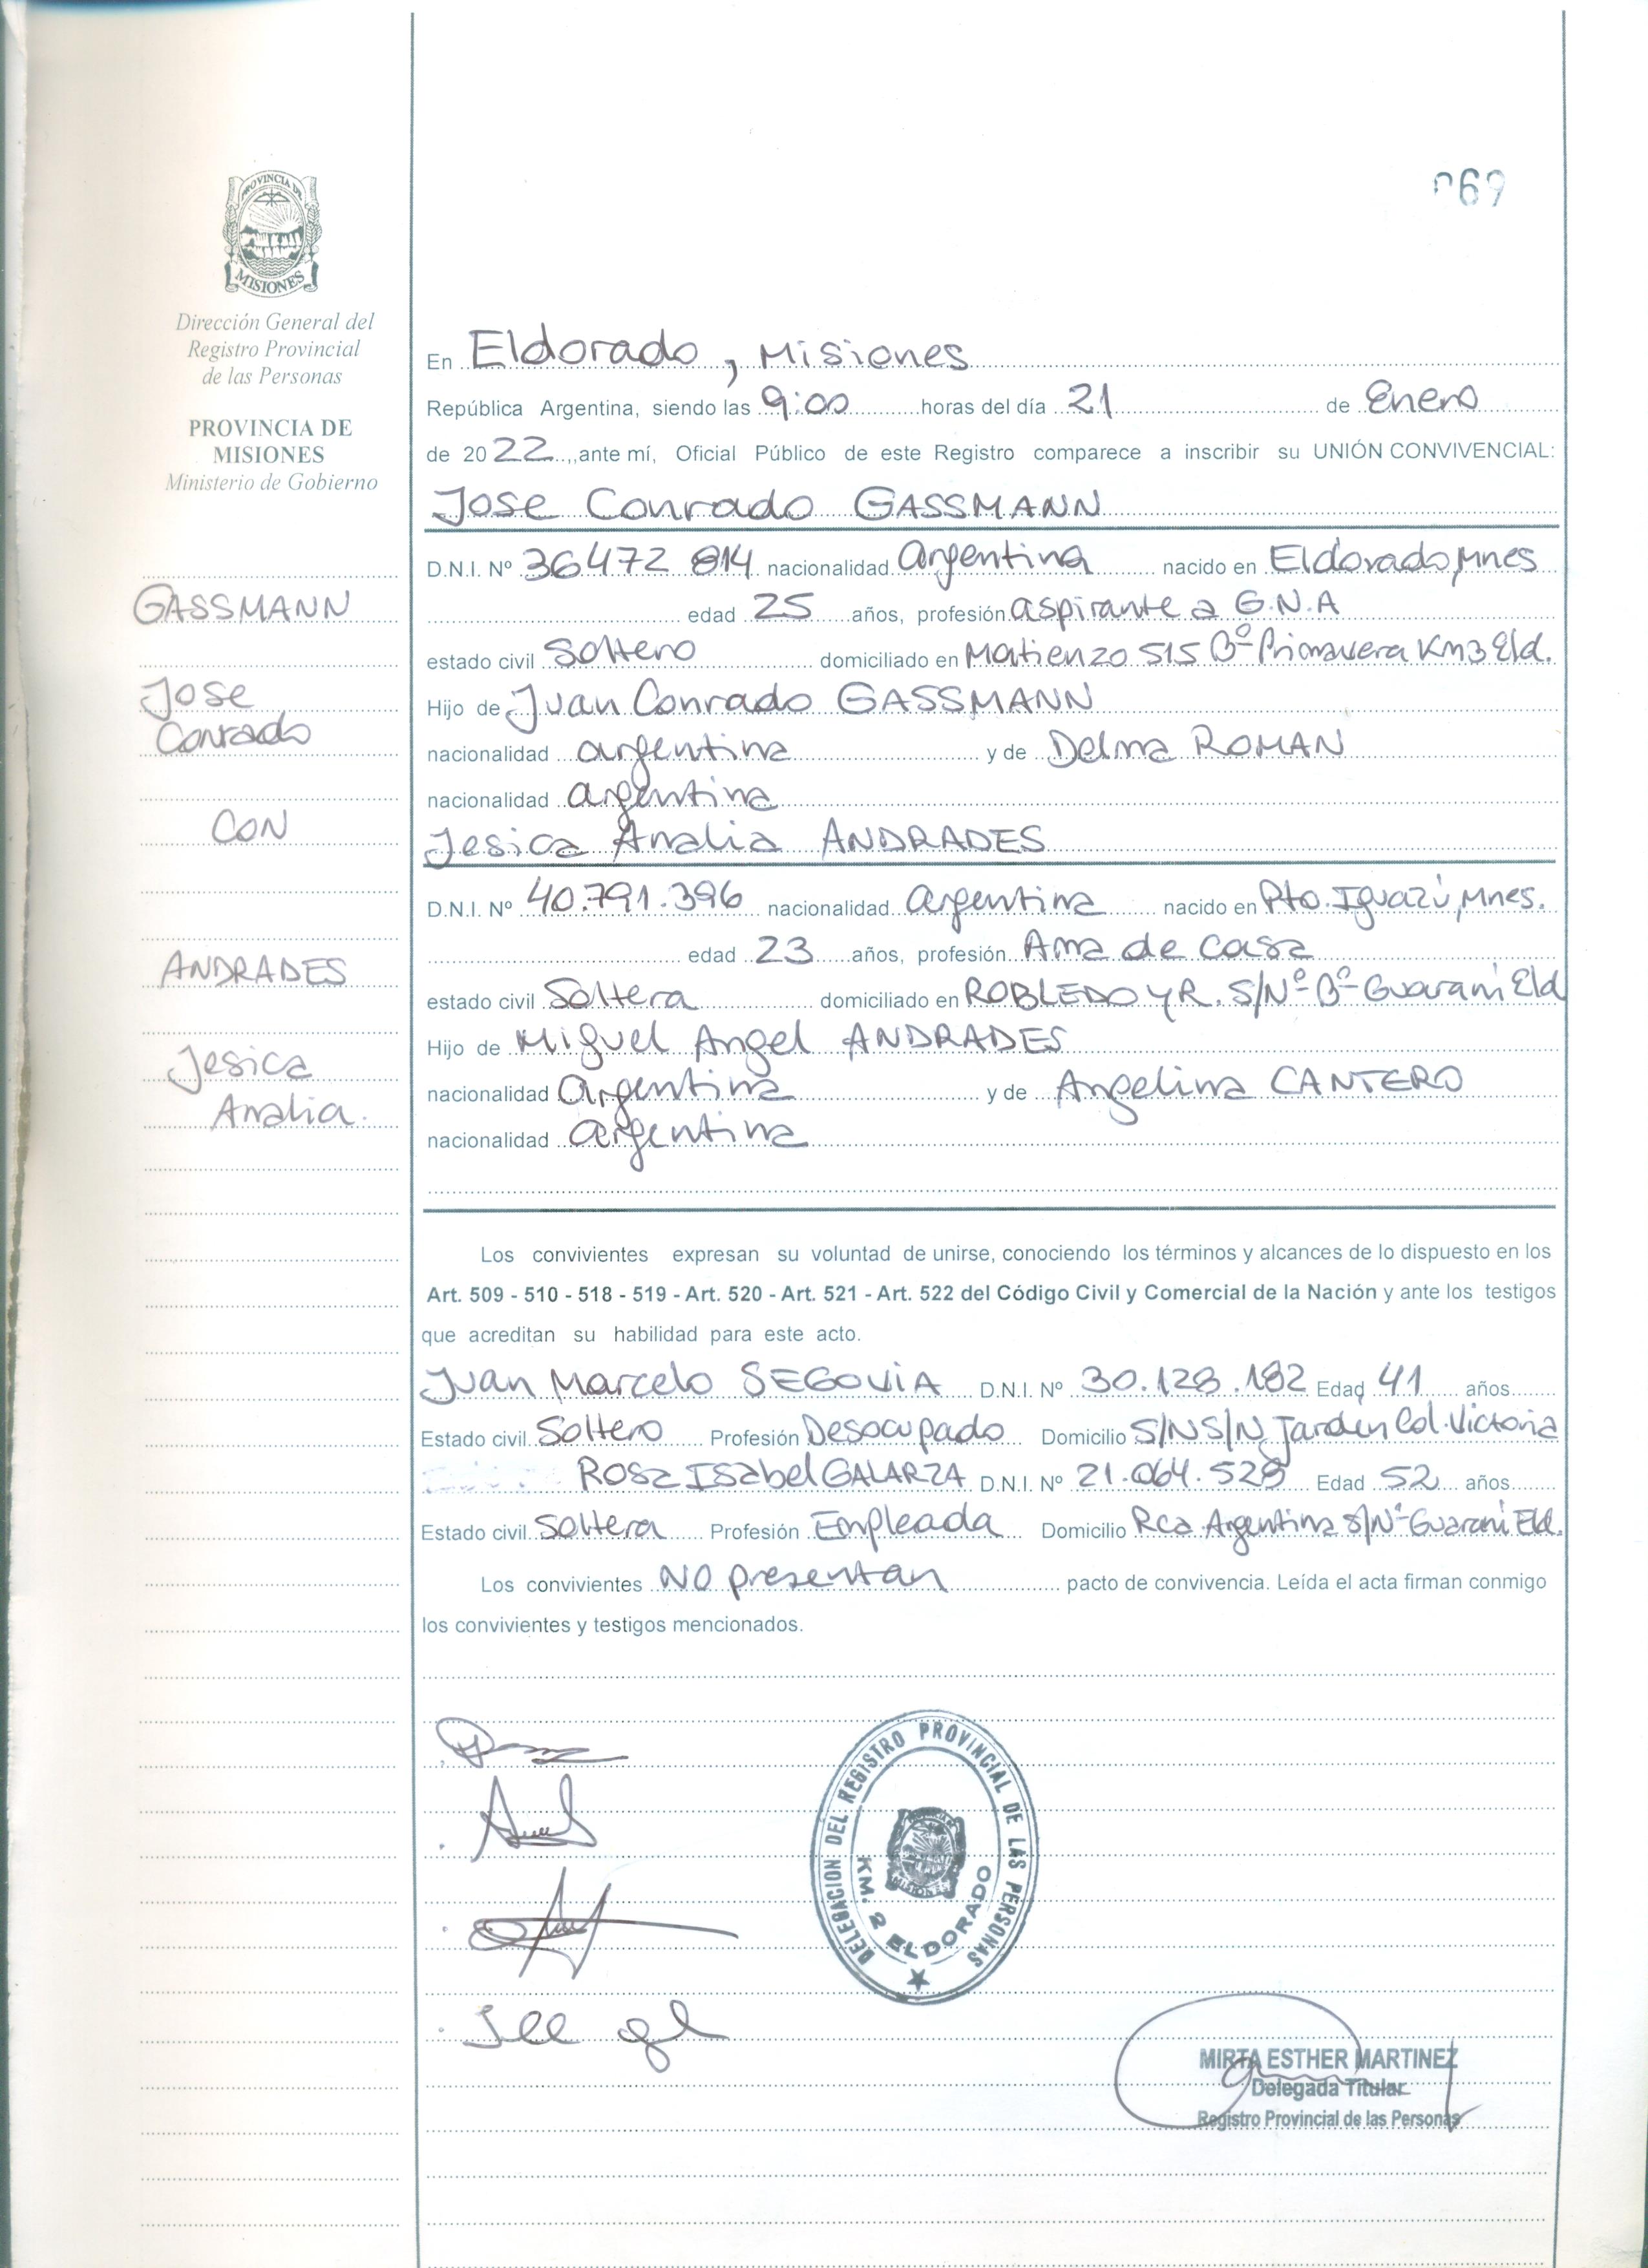 069
PROVINCIA DE
MISIONES
Dirección General del
Registro Provincial
de las Personas
PROVINCIA DE
MISIONES
Ministerio de Gobierno
GASSMANN
Jose
Conrado
CON
ANDRADES
Jesica
Analia.
En Eldorado, Misiones
República Argentina, siendo las 9:00 horas del día 21 de Enero
de 2022, ante mí, Oficial Público de este Registro comparece a inscribir su UNIÓN CONVIVENCIAL:
Jose Conrado GASSMANN
D.N.I. Nº 36472 814 nacionalidad Argentina nacido en Eldorado, Mnes
edad 25 años, profesión aspirante a G.N.A
estado civil Soltero domiciliado en Matienzo 515 Bº Primavera Km3 Eld.
Hijo de Juan Conrado GASSMANN
nacionalidad argentina y de Delma ROMAN
nacionalidad argentina
Jesica Analia ANDRADES
D.N.I. Nº 40.791.396 nacionalidad Argentina nacido en Pto. Iguazú, Mnes.
edad 23 años, profesión Ama de casa
estado civil Soltera domiciliado en ROBLEDO y R. S/Nº Bº Guaraní Eld
Hijo de Miguel Angel ANDRADES
nacionalidad Argentina y de Angelina CANTERO
nacionalidad argentina
Los convivientes expresan su voluntad de unirse, conociendo los términos y alcances de lo dispuesto en los
Art. 509 - 510 - 518 - 519 - Art. 520 - Art. 521 - Art. 522 del Código Civil y Comercial de la Nación y ante los testigos
que acreditan su habilidad para este acto.
Juan Marcelo SEGOVIA D.N.I. Nº 30.128.182 Edad 41 años
Estado civil Soltero Profesión Desocupado Domicilio S/N S/N Jarden Col. Victoria
Rosa Isabel GALARZA D.N.I. Nº 21.064.528 Edad 52 años
Estado civil Soltera Profesión Empleada Domicilio Rca Argentina S/Nº Guaraní Eld.
Los convivientes NO presentan pacto de convivencia. Leída el acta firman conmigo
los convivientes y testigos mencionados.
DELEGACION DEL REGISTRO PROVINCIAL DE LAS PERSONAS
KM. 2 ELDORADO
MISIONES
MIRTA ESTHER MARTINEZ
Delegada Titular
Registro Provincial de las Personas